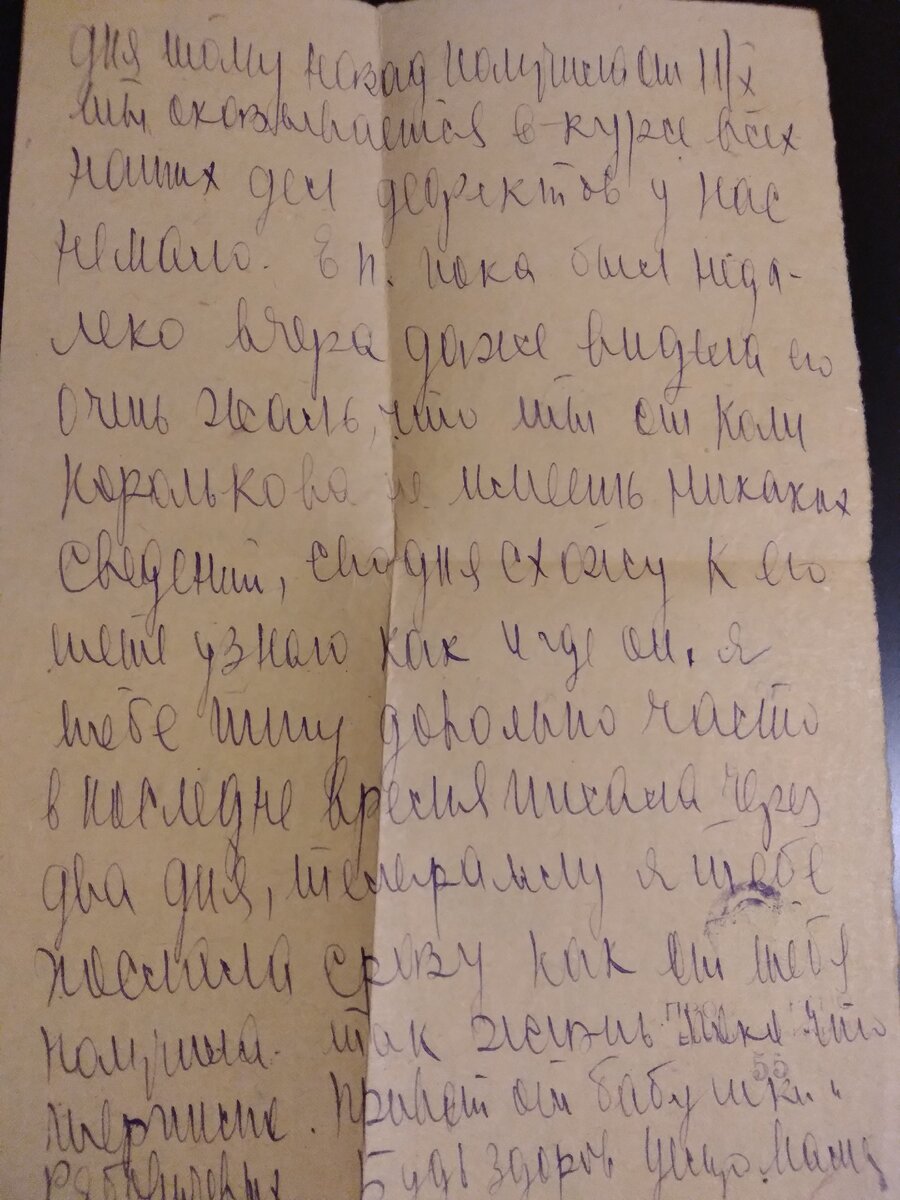 дня тому назад получила от 11/X
ты оказывается в курсе всех
наших дел дефектов у нас
немало. Е п. пока был неда-
леко вчера даже видела его
очень жаль, что ты от Коли
Королькова не имеешь никаких
сведений, сегодня схожу к его
тете узнаю как и где он. я
тебе пишу довольно часто
в последне время писала через
два дня, телеграмму я тебе
послала сразу как от тебя
получила. так жизнь пока что
терпима. Привет от бабушки и
Будь здоров целую Мама